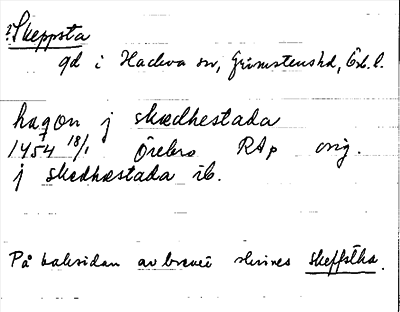 ?Skeppsta
gd i Hackva sn, Grimstenshd, Örl.
hagon j skædhestada
1454 18/1 Örebro RAp orig.
j skædhæstada ib.
På baksidan av brevet skrives skeffstha.